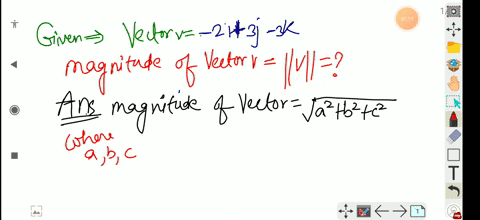 Given⇒ Vector v = -2i+3j-3k
magnitude of Vector v = ||v|| = ?
Ans magnitude of Vector = √a²+b²+c²
where
a, b, c